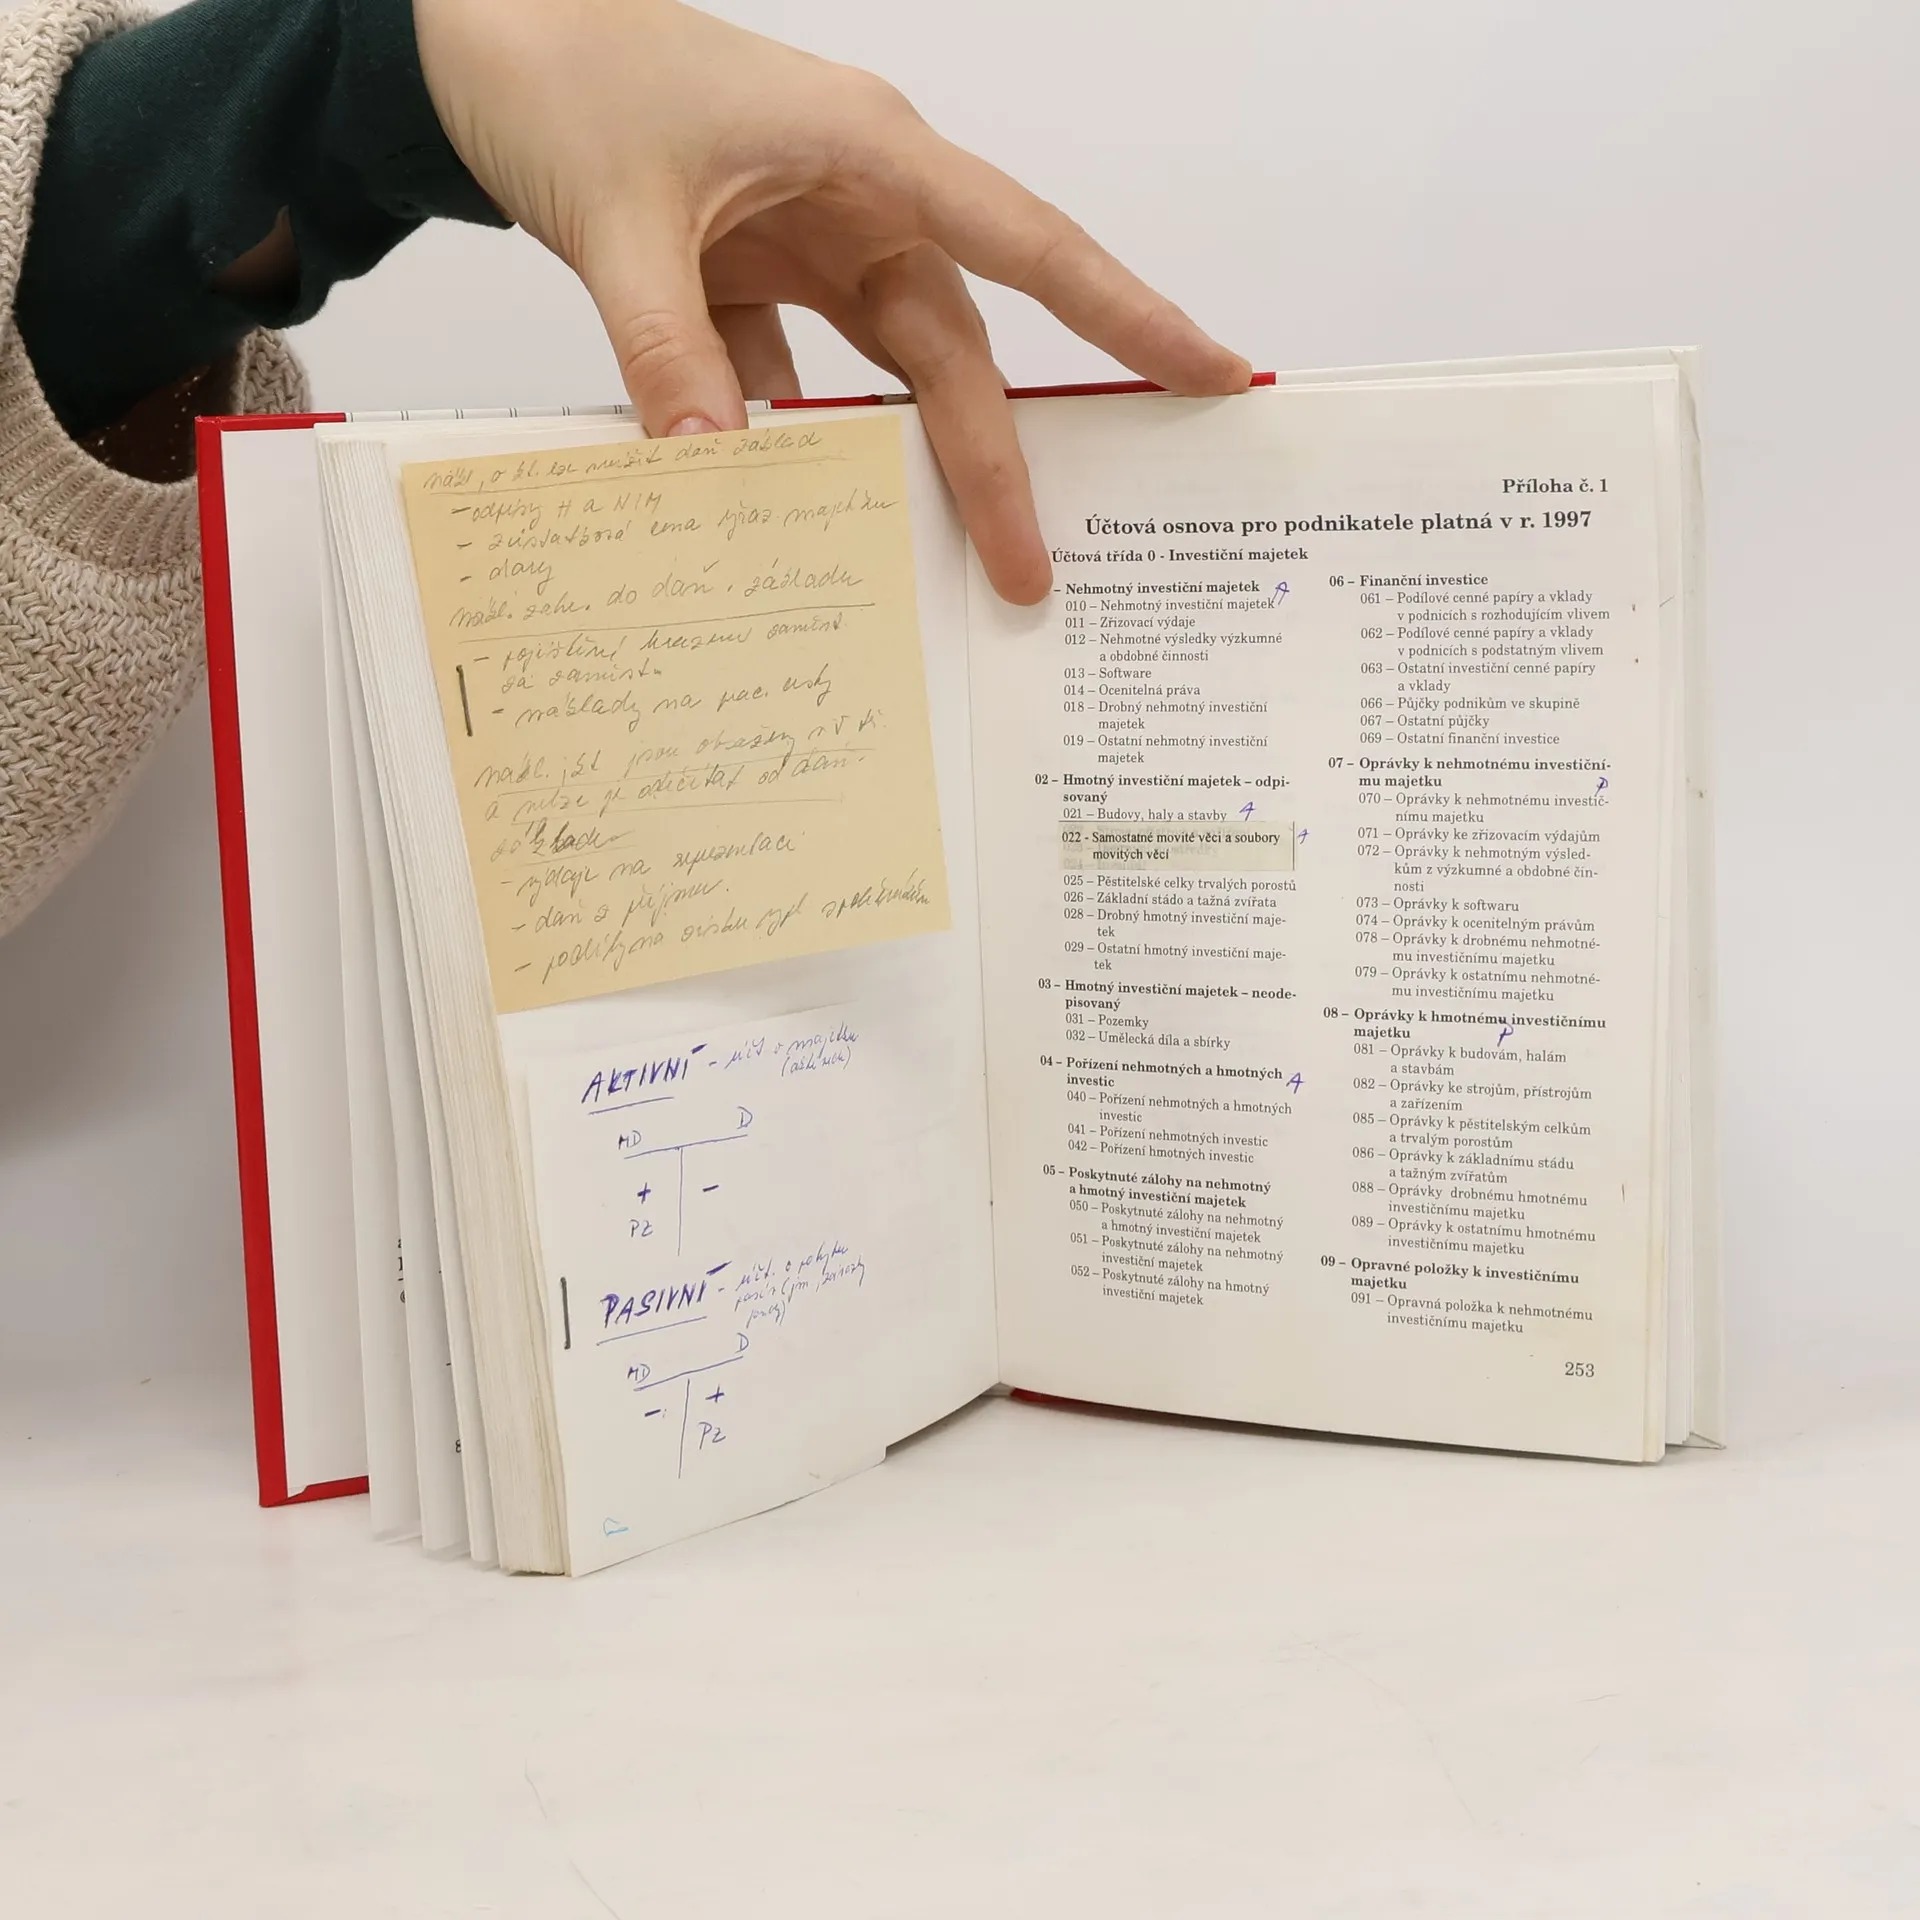 nákl., o kt. lze snížit daň základ
- odpisy H a NIM
- zůstatková cena vyřaz. majetku
- dary
nákl. zahr. do daň. základu
- pojištění hrazené zaměst.
za zaměst.
- náklady na prac. cesty
nákl. jsou obsaženy
a nelze je odečítat od daň.
základu
- výdaje na reprezentaci
- daň z příjmu
- podíly na zisku vypl. společníkům
AKTIVNÍ - účt o majetku
MD D
+ -
PZ
PASIVNÍ - účt. o pohybu
MD D
- +
PZ
Příloha č. 1
Účtová osnova pro podnikatele platná v r. 1997
Účtová třída 0 - Investiční majetek
– Nehmotný investiční majetek A
010 – Nehmotný investiční majetek
011 – Zřizovací výdaje
012 – Nehmotné výsledky výzkumné
a obdobné činnosti
013 – Software
014 – Ocenitelná práva
018 – Drobný nehmotný investiční
majetek
019 – Ostatní nehmotný investiční
majetek
02 – Hmotný investiční majetek – odpi-
sovaný
021 – Budovy, haly a stavby A
022 - Samostatné movité věci a soubory A
movitých věcí
025 – Pěstitelské celky trvalých porostů
026 – Základní stádo a tažná zvířata
028 – Drobný hmotný investiční maje-
tek
029 – Ostatní hmotný investiční maje-
tek
03 – Hmotný investiční majetek – neode-
pisovaný
031 – Pozemky
032 – Umělecká díla a sbírky
04 – Pořízení nehmotných a hmotných
investic A
040 – Pořízení nehmotných a hmotných
investic
041 – Pořízení nehmotných investic
042 – Pořízení hmotných investic
05 – Poskytnuté zálohy na nehmotný
a hmotný investiční majetek
050 – Poskytnuté zálohy na nehmotný
a hmotný investiční majetek
051 – Poskytnuté zálohy na nehmotný
investiční majetek
052 – Poskytnuté zálohy na hmotný
investiční majetek
06 – Finanční investice
061 – Podílové cenné papíry a vklady
v podnicích s rozhodujícím vlivem
062 – Podílové cenné papíry a vklady
v podnicích s podstatným vlivem
063 – Ostatní investiční cenné papíry
a vklady
066 – Půjčky podnikům ve skupině
067 – Ostatní půjčky
069 – Ostatní finanční investice
07 – Oprávky k nehmotnému investiční-
mu majetku P
070 – Oprávky k nehmotnému investič-
nímu majetku
071 – Oprávky ke zřizovacím výdajům
072 – Oprávky k nehmotným výsled-
kům z výzkumné a obdobné čin-
nosti
073 – Oprávky k softwaru
074 – Oprávky k ocenitelným právům
078 – Oprávky k drobnému nehmotné-
mu investičnímu majetku
079 – Oprávky k ostatnímu nehmotné-
mu investičnímu majetku
08 – Oprávky k hmotnému investičnímu
majetku P
081 – Oprávky k budovám, halám
a stavbám
082 – Oprávky ke strojům, přístrojům
a zařízením
085 – Oprávky k pěstitelským celkům
a trvalým porostům
086 – Oprávky k základnímu stádu
a tažným zvířatům
088 – Oprávky drobnému hmotnému
investičnímu majetku
089 – Oprávky k ostatnímu hmotnému
investičnímu majetku
09 – Opravné položky k investičnímu
majetku
091 – Opravná položka k nehmotnému
investičnímu majetku
253